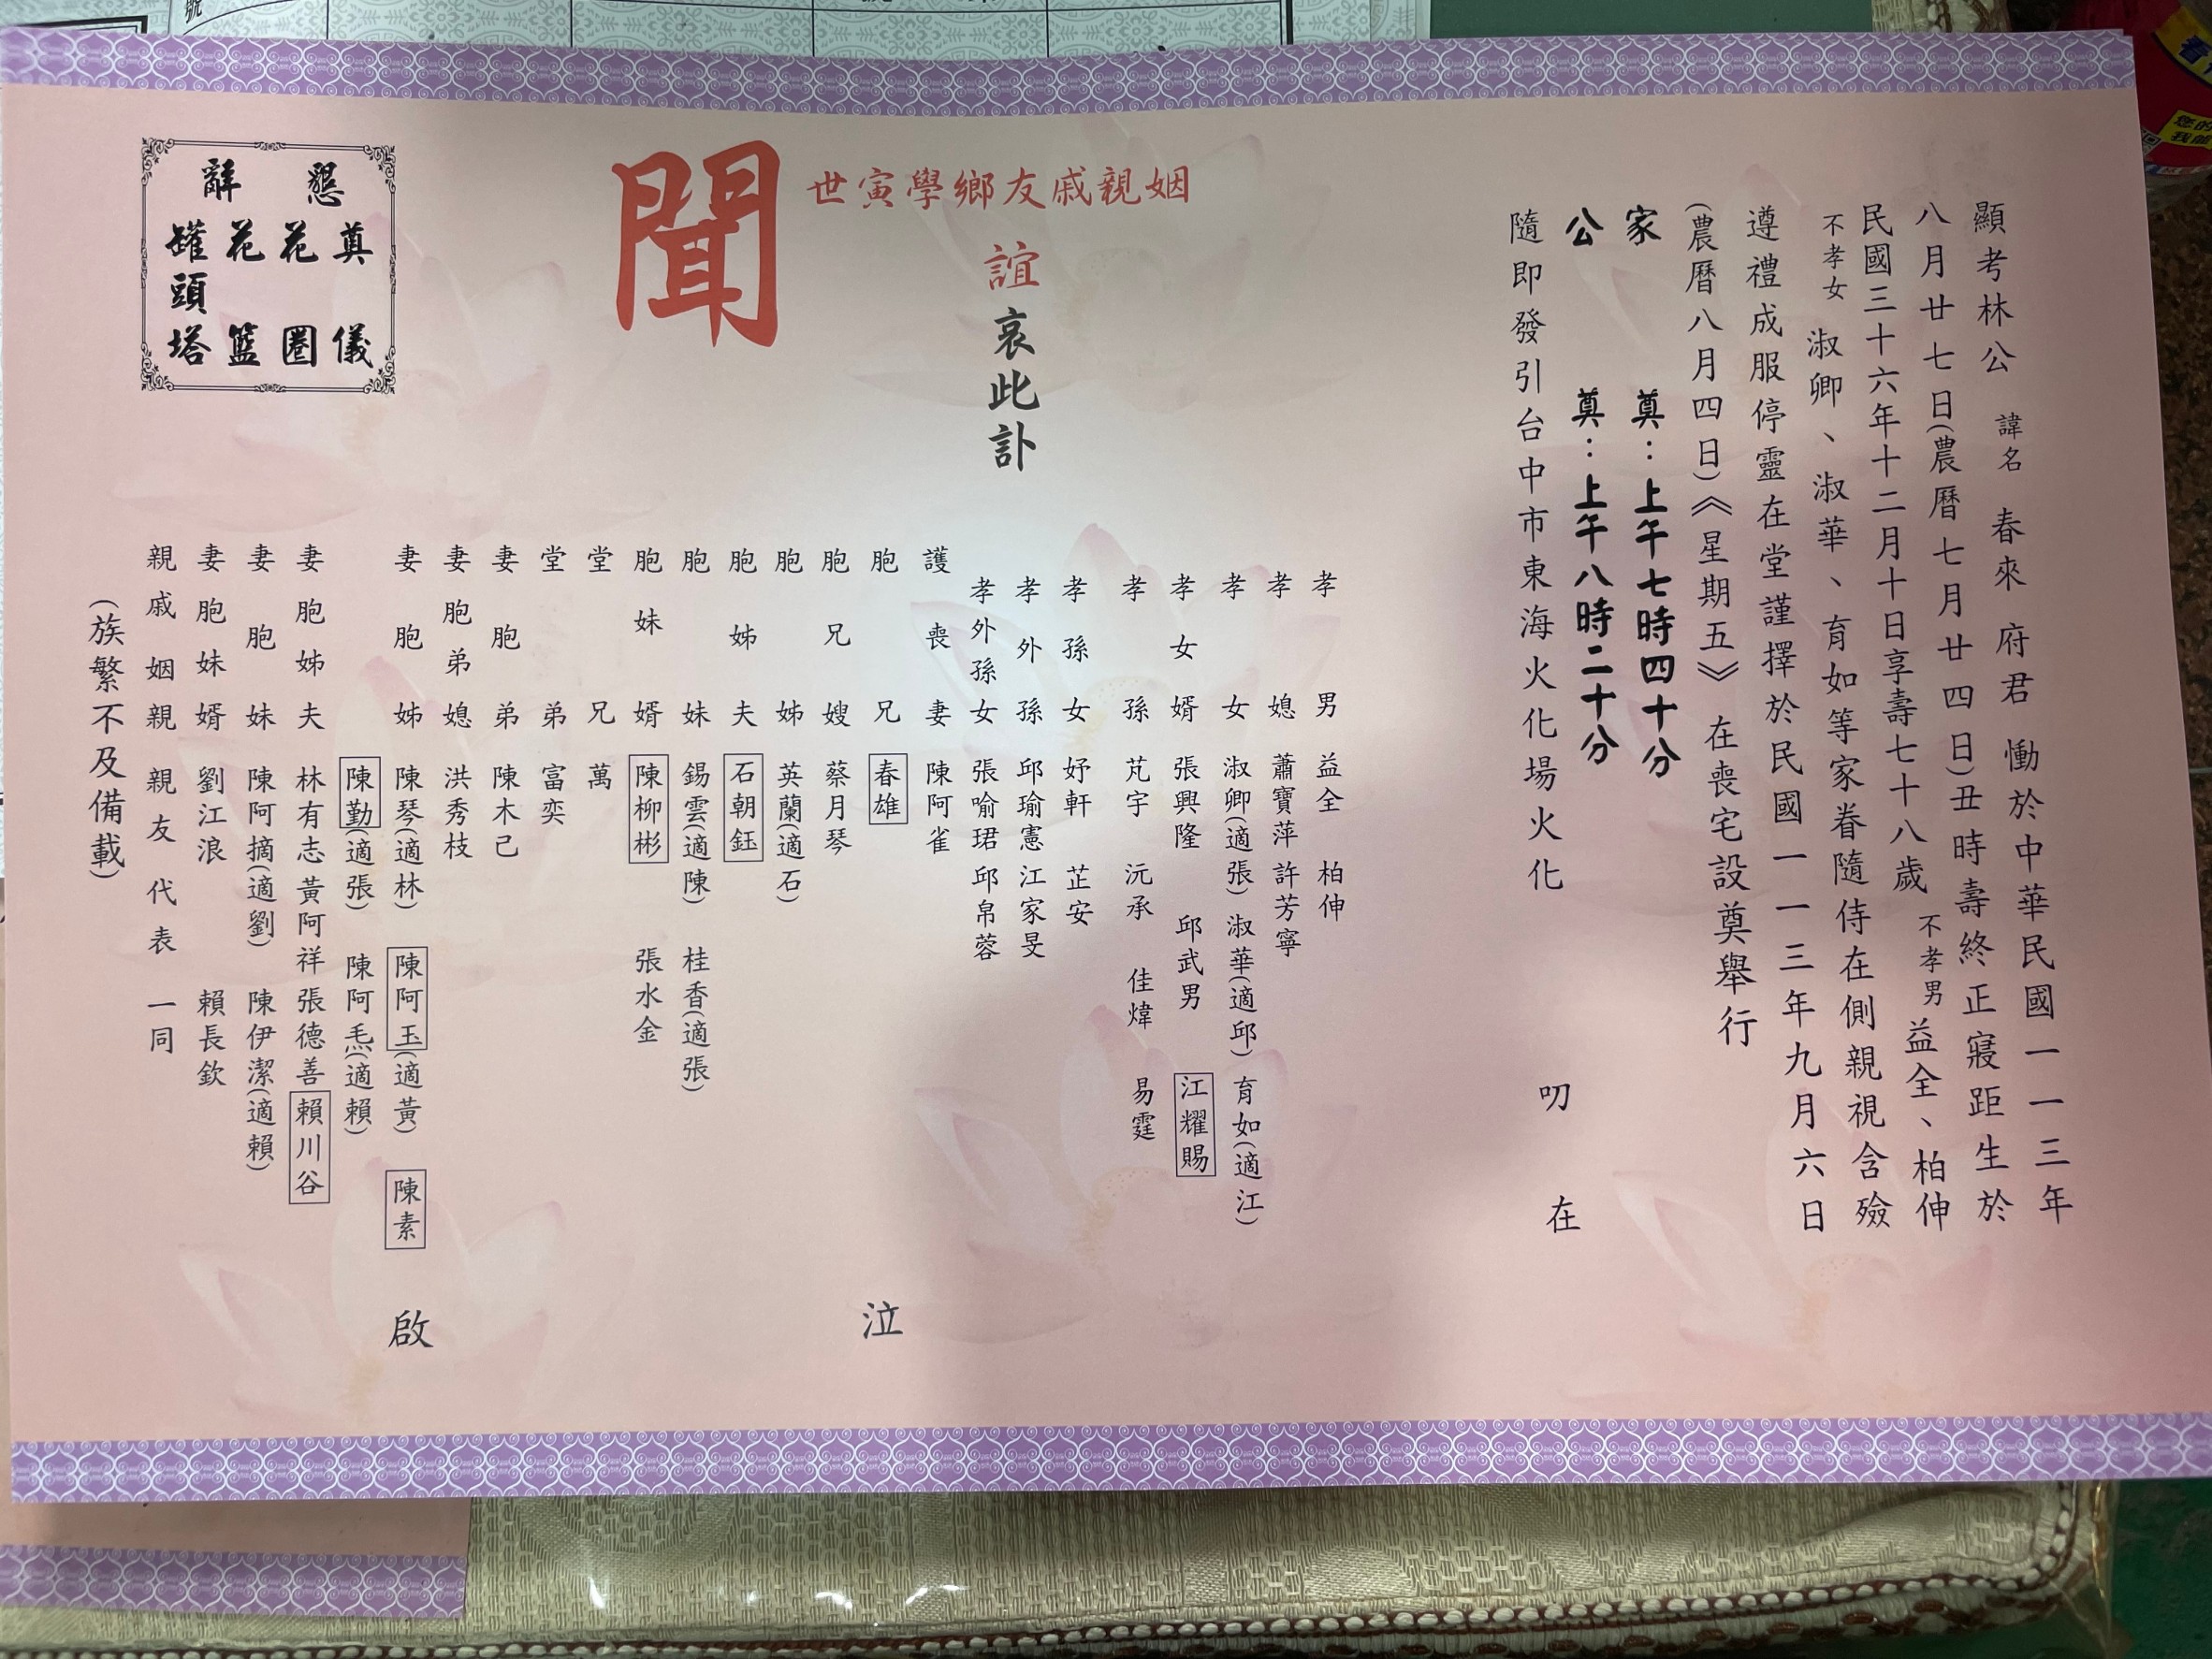 顯考林公 諱名 春來 府君 慟於中華民國一一三年
八月廿七日(農曆七月廿四日)丑時壽終正寢距生於
民國三十六年十二月十日享壽七十八歲 不孝男 益全、柏伸
不孝女 淑卿、淑華、育如等家眷隨侍在側親視含殮
遵禮成服停靈在堂謹擇於民國一一三年九月六日
(農曆八月四日)《星期五》 在喪宅設奠舉行
家 奠：上午七時四十分
公 奠：上午八時二十分
隨即發引台中市東海火化場火化 叨 在
姻親戚友鄉學寅世
誼哀此訃
聞
孝男 益全 柏伸
孝媳 蕭寶萍 許芳寧
孝女 淑卿(適張) 淑華(適邱) 育如(適江)
孝女婿 張興隆 邱武男 江耀賜
孝孫 芃宇 沅承 佳煒 易霆
孝孫女 妤軒 芷安
孝外孫 邱瑜憲 江家旻
孝外孫女 張喻珺 邱帛蓉
護喪妻 陳阿雀
胞兄 春雄
胞兄嫂 蔡月琴
胞姊 英蘭(適石)
胞姊夫 石朝鈺
胞妹 錫雲(適陳) 桂香(適張)
胞妹婿 陳柳彬 張水金
堂兄 萬
堂弟 富奕
妻胞弟 陳木己
妻胞弟媳 洪秀枝
妻胞姊 陳琴(適林) 陳阿玉(適黃) 陳素
陳勤(適張) 陳阿𣭈(適賴)
妻胞姊夫 林有志 黃阿祥 張德善 賴川谷
妻胞妹 陳阿摘(適劉) 陳伊潔(適賴)
妻胞妹婿 劉江浪 賴長欽
親戚姻親 親友代表 一同
(族繁不及備載)
泣
啟
懇辭
奠儀
花圈
花籃
罐頭塔